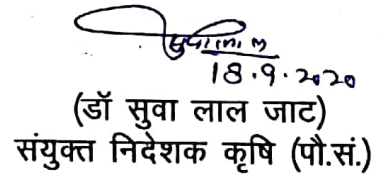 18.9.2020
(डॉ सुवा लाल जाट)
संयुक्त निदेशक कृषि (पौ.सं.)